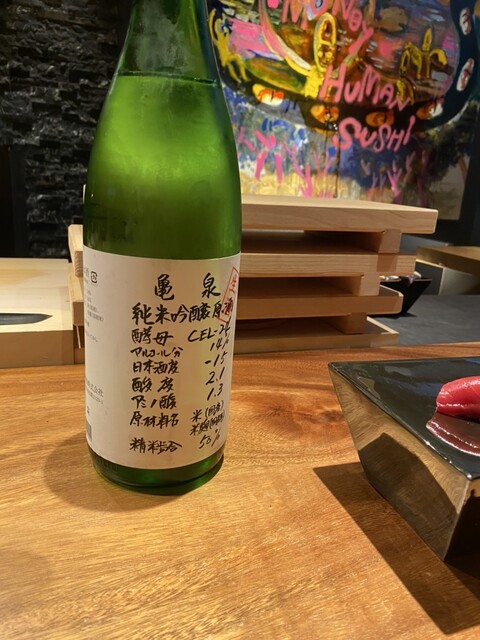 MONEY
HUMAN
SUSHI
亀泉
純米吟醸原酒
生
酵母 CEL-24
アルコール分 14%
日本酒度 -15
酸度 2.1
アミノ酸 1.3
原材料名 米(国産)
米麹(国産米)
精米歩合 50%